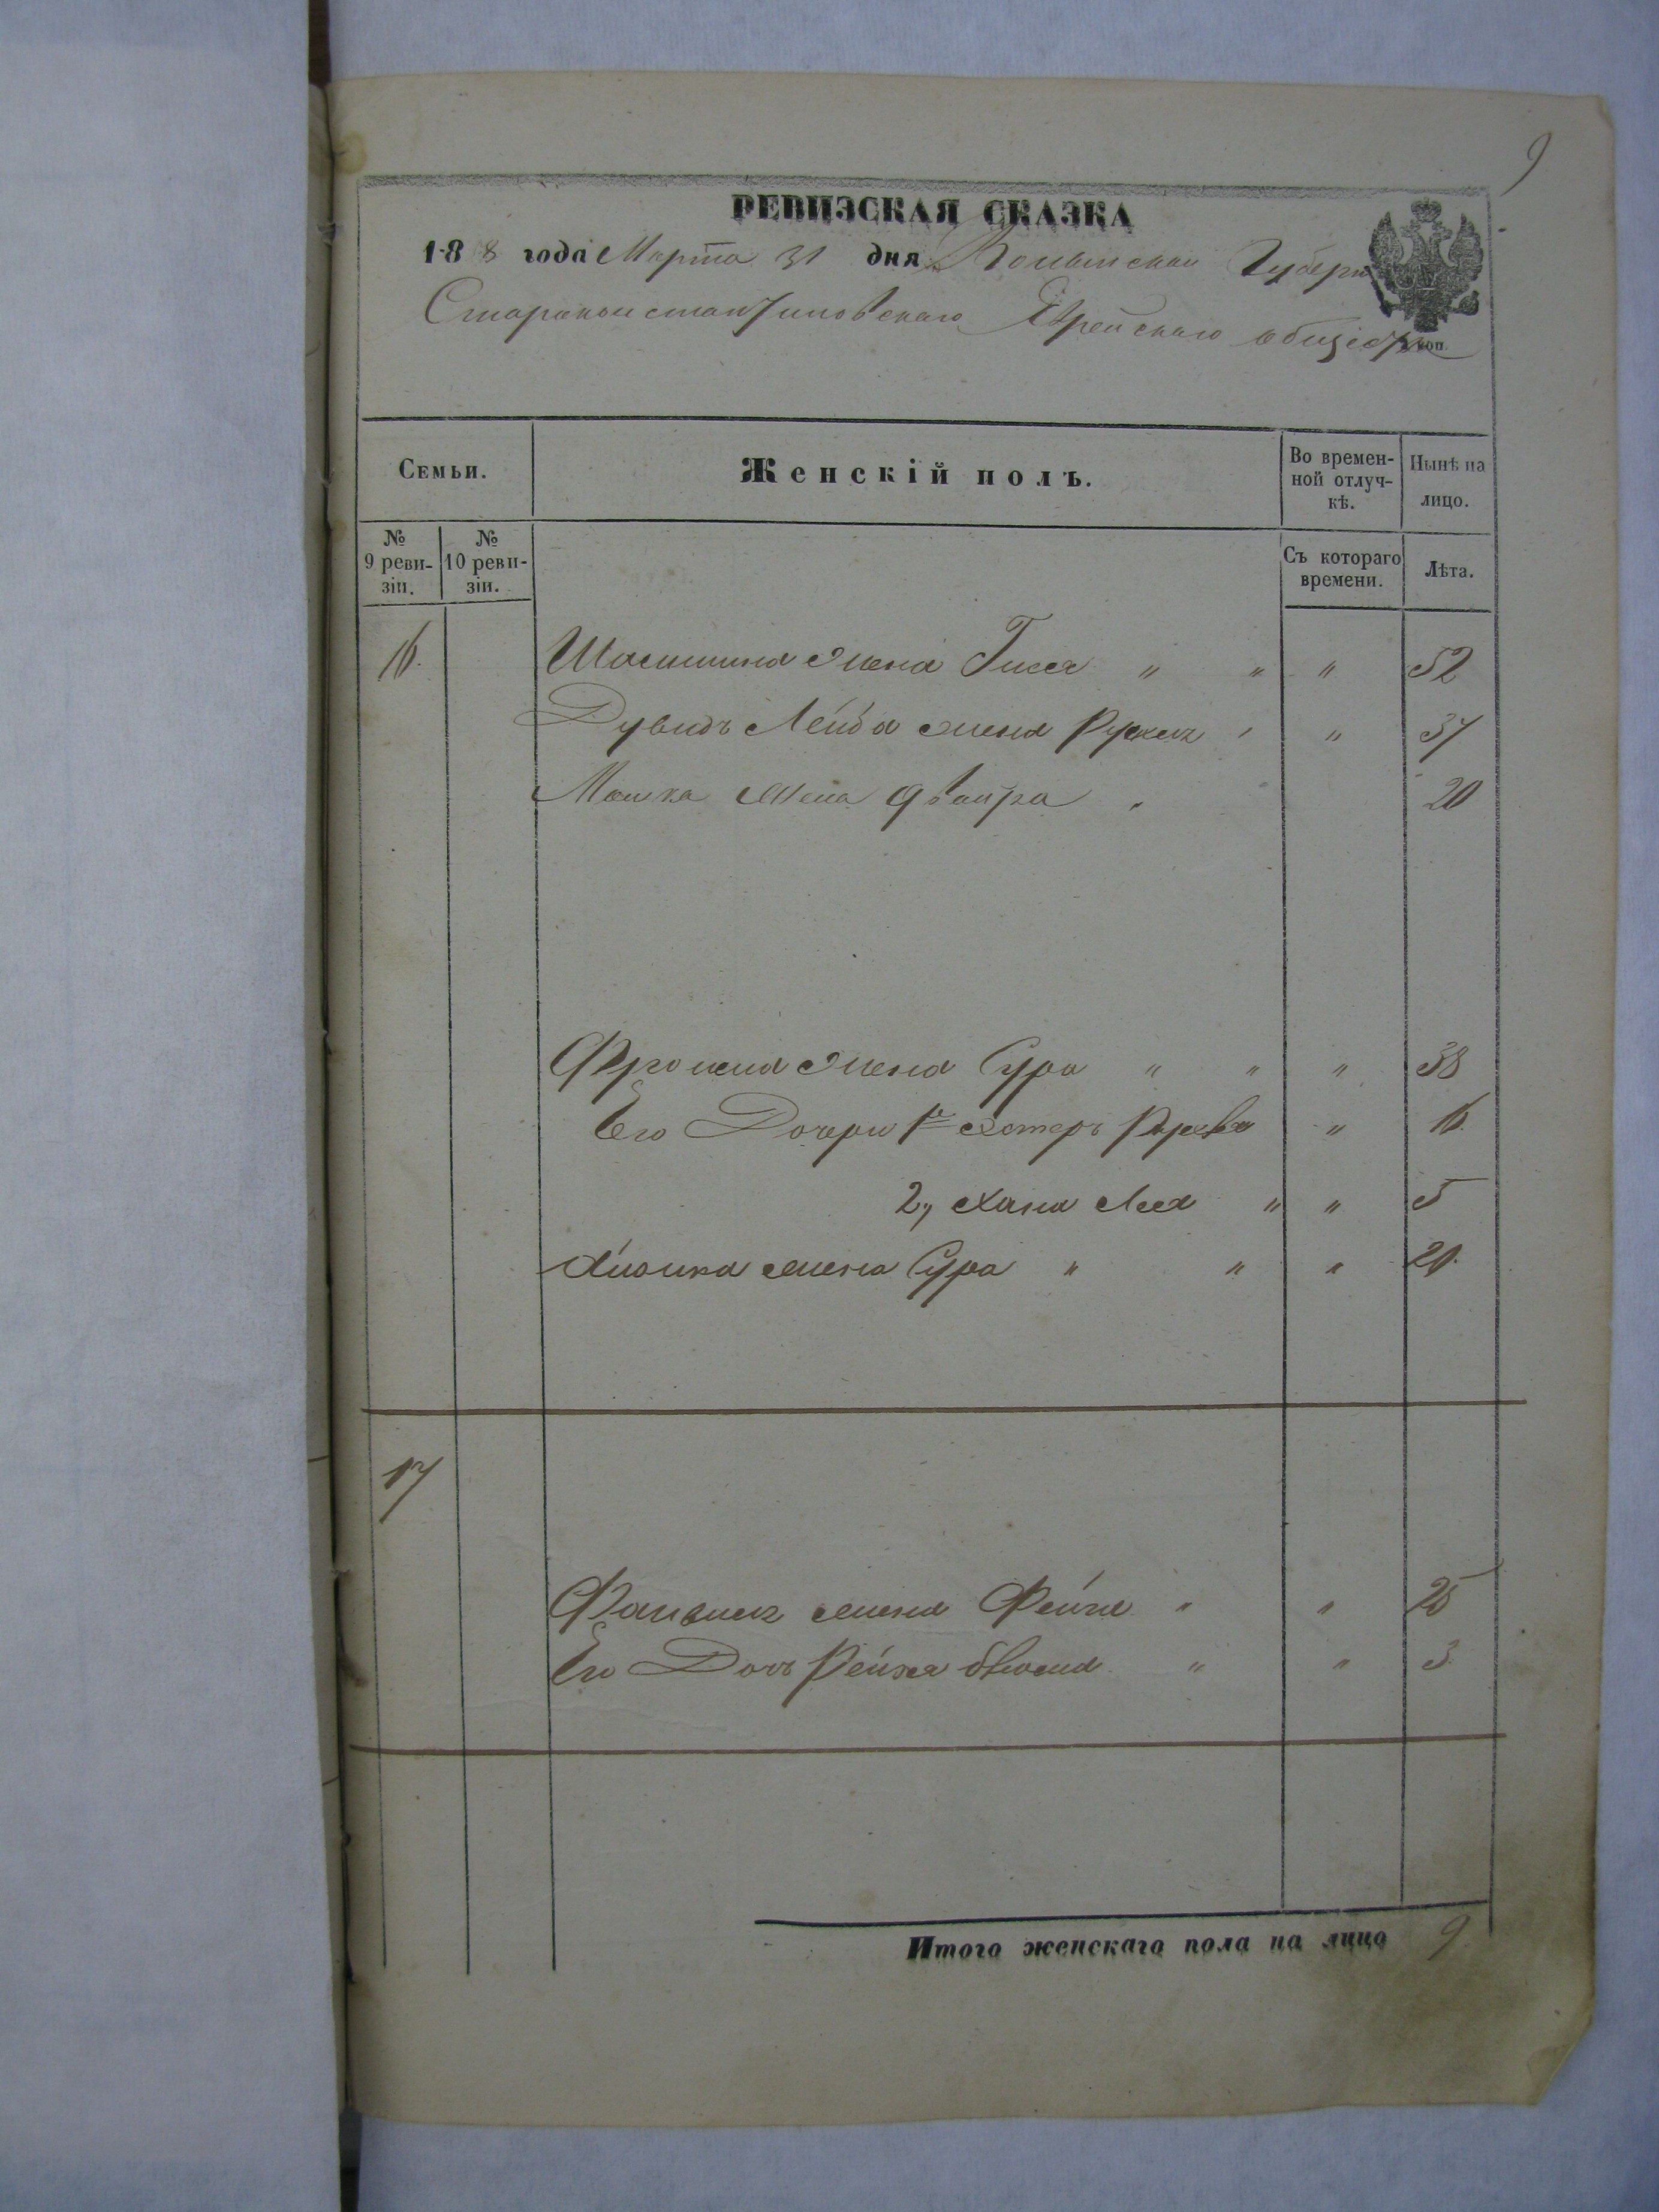 9
РЕВИЗСКАЯ СКАЗКА
188 года Марта 31 дня Волынской Губерн
Староконстантиновскаго Еврейскаго общест
коп
Семьи. Женскій полъ. Во времен-ной отлуч-кѣ. Нынѣ на лицо.
№ 9 реви-зіи. № 10 реви-зіи. Съ котораго времени. Лѣта.
16. жена Гися " " " 52
Дувидъ Лейба жена Рухель " " 37
Мошка жена Двойра " 20
Фроима жена Сура " " " 38
Его Дочери 1я Эстеръ " 16
2, Хана Лея " " 5
жена Сура " " " 21.
17
жена Фейга " " 25
Его Дочь " " 3
Итого женскаго пола на лицо 9